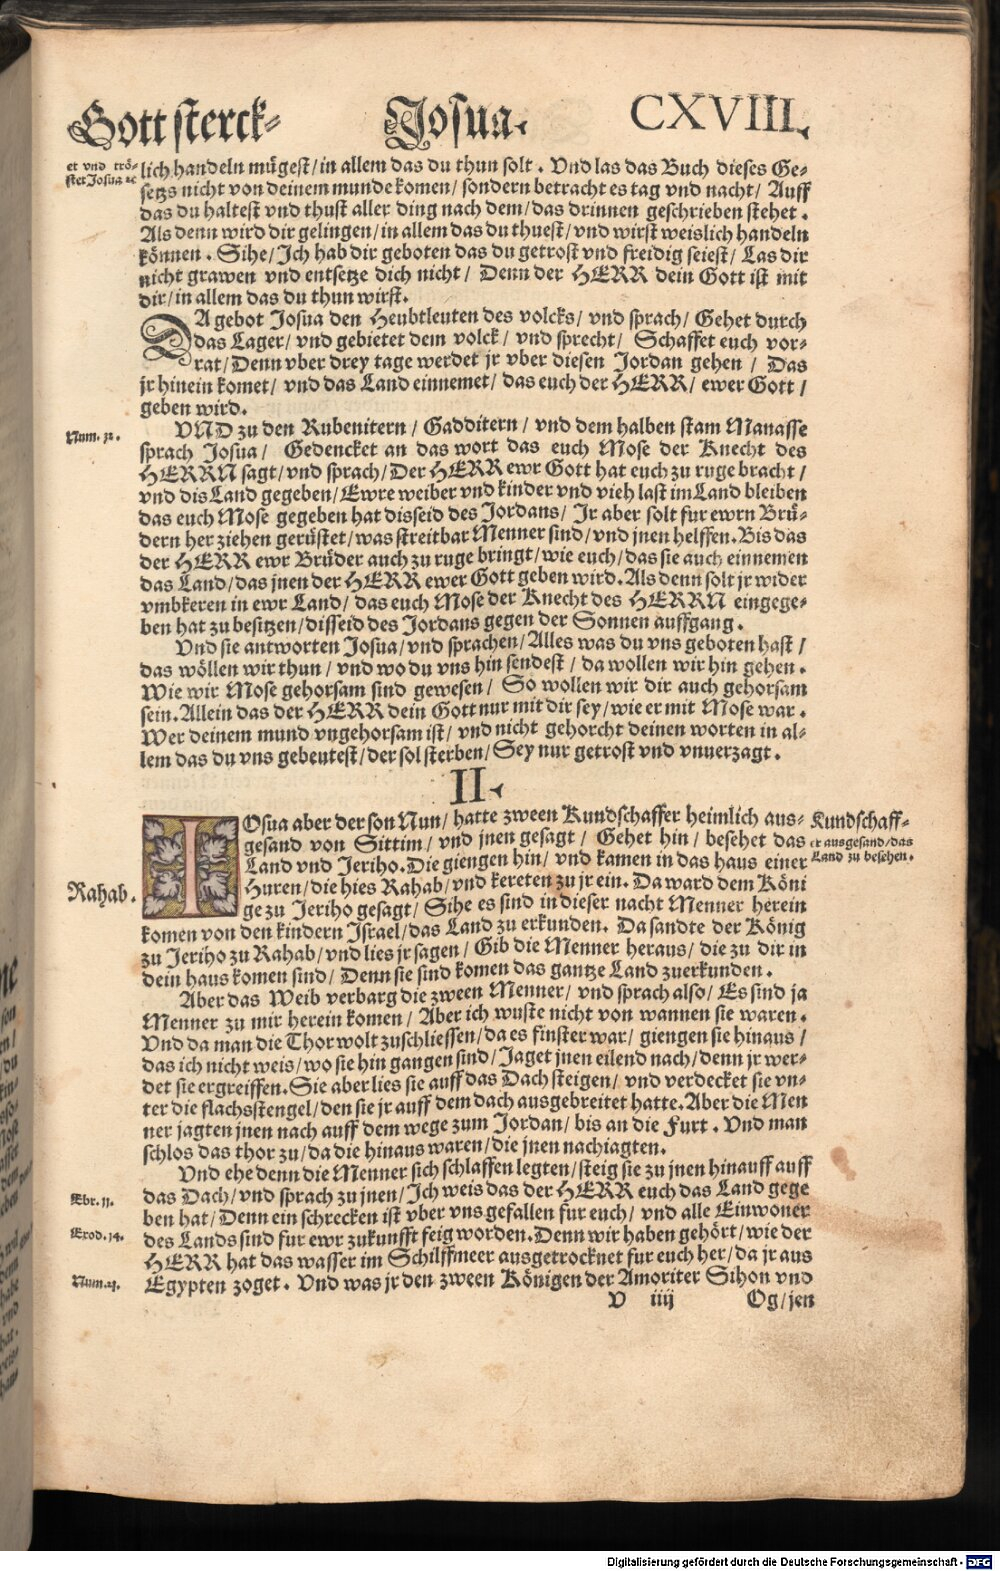 Gott sterck-
Josua.
CXVIII.
et vnd trö-
stet Josua ꝛc
lich handeln mügest/ in allem das du thun solt. Vnd las das Buch dieses Ge-
setzs nicht von deinem munde komen/ sondern betracht es tag vnd nacht/ Auff
das du haltest vnd thust aller ding nach dem/ das drinnen geschrieben stehet.
Als denn wird dir gelingen/ in allem das du thuest/ vnd wirst weislich handeln
können. Sihe/ Ich hab dir geboten das du getrost vnd freidig seiest/ Las dir
nicht grawen vnd entsetze dich nicht/ Denn der HERR dein Gott ist mit
dir/ in allem das du thun wirst.
DA gebot Josua den Heubtleuten des volcks/ vnd sprach/ Gehet durch
das Lager/ vnd gebietet dem volck/ vnd sprecht/ Schaffet euch vor-
rat/ Denn vber drey tage werdet jr vber diesen Jordan gehen/ Das
jr hinein komet/ vnd das Land einnemet/ das euch der HERR/ ewer Gott/
geben wird.
Num. 32.
VND zu den Rubenitern/ Gadditern/ vnd dem halben stam Manasse
sprach Josua/ Gedencket an das wort das euch Mose der Knecht des
HERRN sagt/ vnd sprach/ Der HERR ewr Gott hat euch zu ruge bracht/
vnd dis Land gegeben/ Ewre weiber vnd kinder vnd vieh last im Land bleiben
das euch Mose gegeben hat disseid des Jordans/ Jr aber solt fur ewrn Brü-
dern her ziehen gerüstet/ was streitbar Menner sind/ vnd jnen helffen. Bis das
der HERR ewr Brüder auch zu ruge bringt/ wie euch/ das sie auch einnemen
das Land/ das jnen der HERR ewer Gott geben wird. Als denn solt jr wider
vmbkeren in ewr Land/ das euch Mose der Knecht des HERRN eingege-
ben hat zu besitzen/ disseid des Jordans gegen der Sonnen auffgang.
Vnd sie antworten Josua/ vnd sprachen/ Alles was du vns geboten hast/
das wöllen wir thun/ vnd wo du vns hin sendest/ da wollen wir hin gehen.
Wie wir Mose gehorsam sind gewesen/ So wollen wir dir auch gehorsam
sein. Allein das der HERR dein Gott nur mit dir sey/ wie er mit Mose war.
Wer deinem mund vngehorsam ist/ vnd nicht gehorcht deinen worten in al-
lem das du vns gebeutest/ der sol sterben/ Sey nur getrost vnd vnuerzagt.
II.
IOsua aber der son Nun/ hatte zween Kundschaffer heimlich aus-
gesand von Sittim/ vnd jnen gesagt/ Gehet hin/ besehet das
Land vnd Jeriho. Die giengen hin/ vnd kamen in das haus einer
Huren/ die hies Rahab/ vnd kereten zu jr ein. Da ward dem Köni
ge zu Jeriho gesagt/ Sihe es sind in dieser nacht Menner herein
komen von den kindern Israel/ das Land zu erkunden. Da sandte der König
zu Jeriho zu Rahab/ vnd lies jr sagen/ Gib die Menner heraus/ die zu dir in
dein haus komen sind/ Denn sie sind komen das gantze Land zuerkunden.
Kundschaff-
er ausgesand/ das
Land zu besehen.
Rahab.
Aber das Weib verbarg die zween Menner/ vnd sprach also/ Es sind ja
Menner zu mir herein komen/ Aber ich wuste nicht von wannen sie waren.
Vnd da man die Thor wolt zuschliessen/ da es finster war/ giengen sie hinaus/
das ich nicht weis/ wo sie hin gangen sind/ Jaget jnen eilend nach/ denn jr wer-
det sie ergreiffen. Sie aber lies sie auff das Dach steigen/ vnd verdecket sie vn-
ter die flachsstengel/ den sie jr auff dem dach ausgebreitet hatte. Aber die Men
ner jagten jnen nach auff dem wege zum Jordan/ bis an die Furt. Vnd man
schlos das thor zu/ da die hinaus waren/ die jnen nachiagten.
Vnd ehe denn die Menner sich schlaffen legten/ steig sie zu jnen hinauff auff
das Dach/ vnd sprach zu jnen/ Ich weis das der HERR euch das Land gege
ben hat/ Denn ein schrecken ist vber vns gefallen fur euch/ vnd alle Einwoner
des Lands sind fur ewr zukunfft feig worden. Denn wir haben gehört/ wie der
HERR hat das wasser im Schilffmeer ausgetrocknet fur euch her/ da jr aus
Egypten zoget. Vnd was jr den zween Königen der Amoriter Sihon vnd
Ebr. 11.
Exod. 14.
Num. 21.
V iiij
Og/ jen
Digitalisierung gefördert durch die Deutsche Forschungsgemeinschaft - DFG